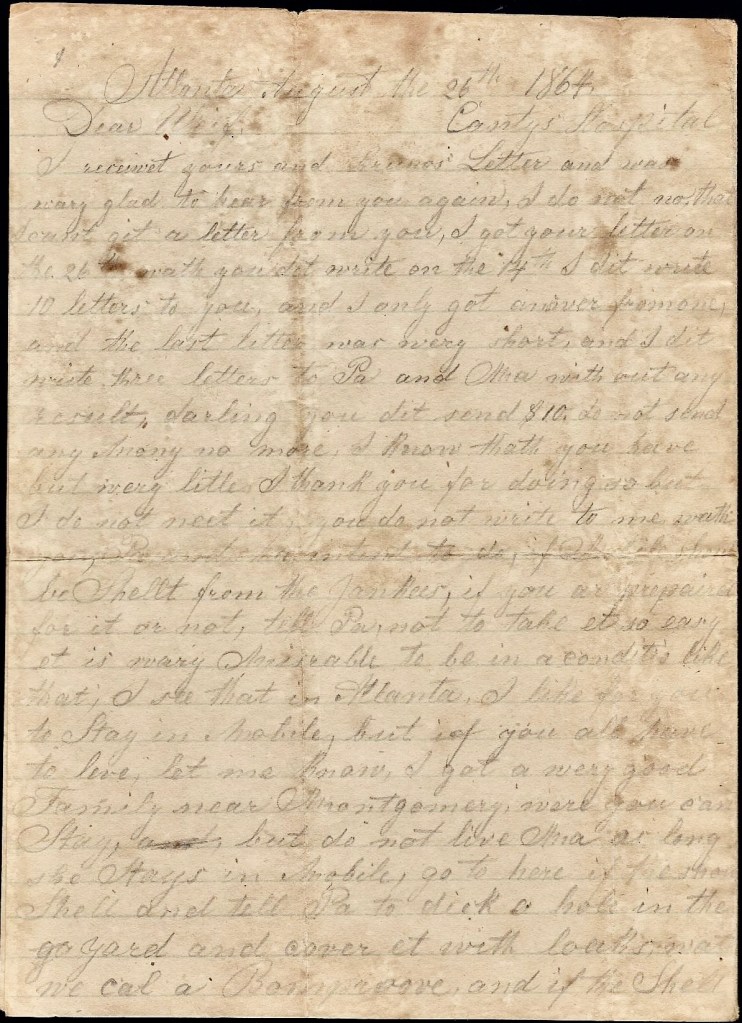 Atlanta August the 26th 1864.
Dear Wife, Cantys Hospital
I recewet yours and Brunos Letter and was
wary glad to hear from you again, I do not no, that
I cant git a letter from you, I got your letter on
the 26th wath you dit write on the 14th I dit write
10 letters to you, and I only got answer from one,
and the last letter was wery short, and I dit
write three letters to Pa and Ma with out any
result, darling you dit send $10. do not send
any Mony no more, I know thath you have
but wery litle I thank you for doing so but
I do not neet it, you do not write to me wath
you, Pa and Ma intend to do, if
be Shellt from the Yankees, if you ar prepaird
for it or not, tell Pa, not to take et so easy
et is wary Misrable to be in a condition like
that, I see that in Atlanta, I like for you
to Stay in Mobile, but if you all have
to leve, let me know, I got a wery good
Family near Montgomery, were you can
Stay, and, but do not live Ma as long
she Stays in Mobile, go to here if the
Shell and tell Pa to dick a hole in the
gayard and cover et with
we cal a Bomproove, and if the Shell